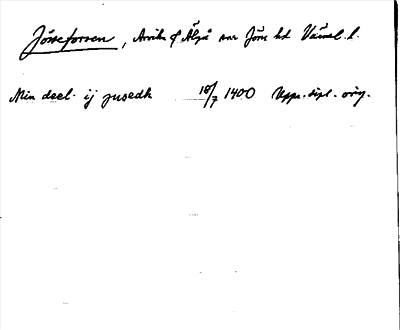 Jösseforsen, Arvika o Älgå snr Jösse hd Värml. l.
Min deel ij jusedh 18/7 1400 Uppr. dipl. orig.